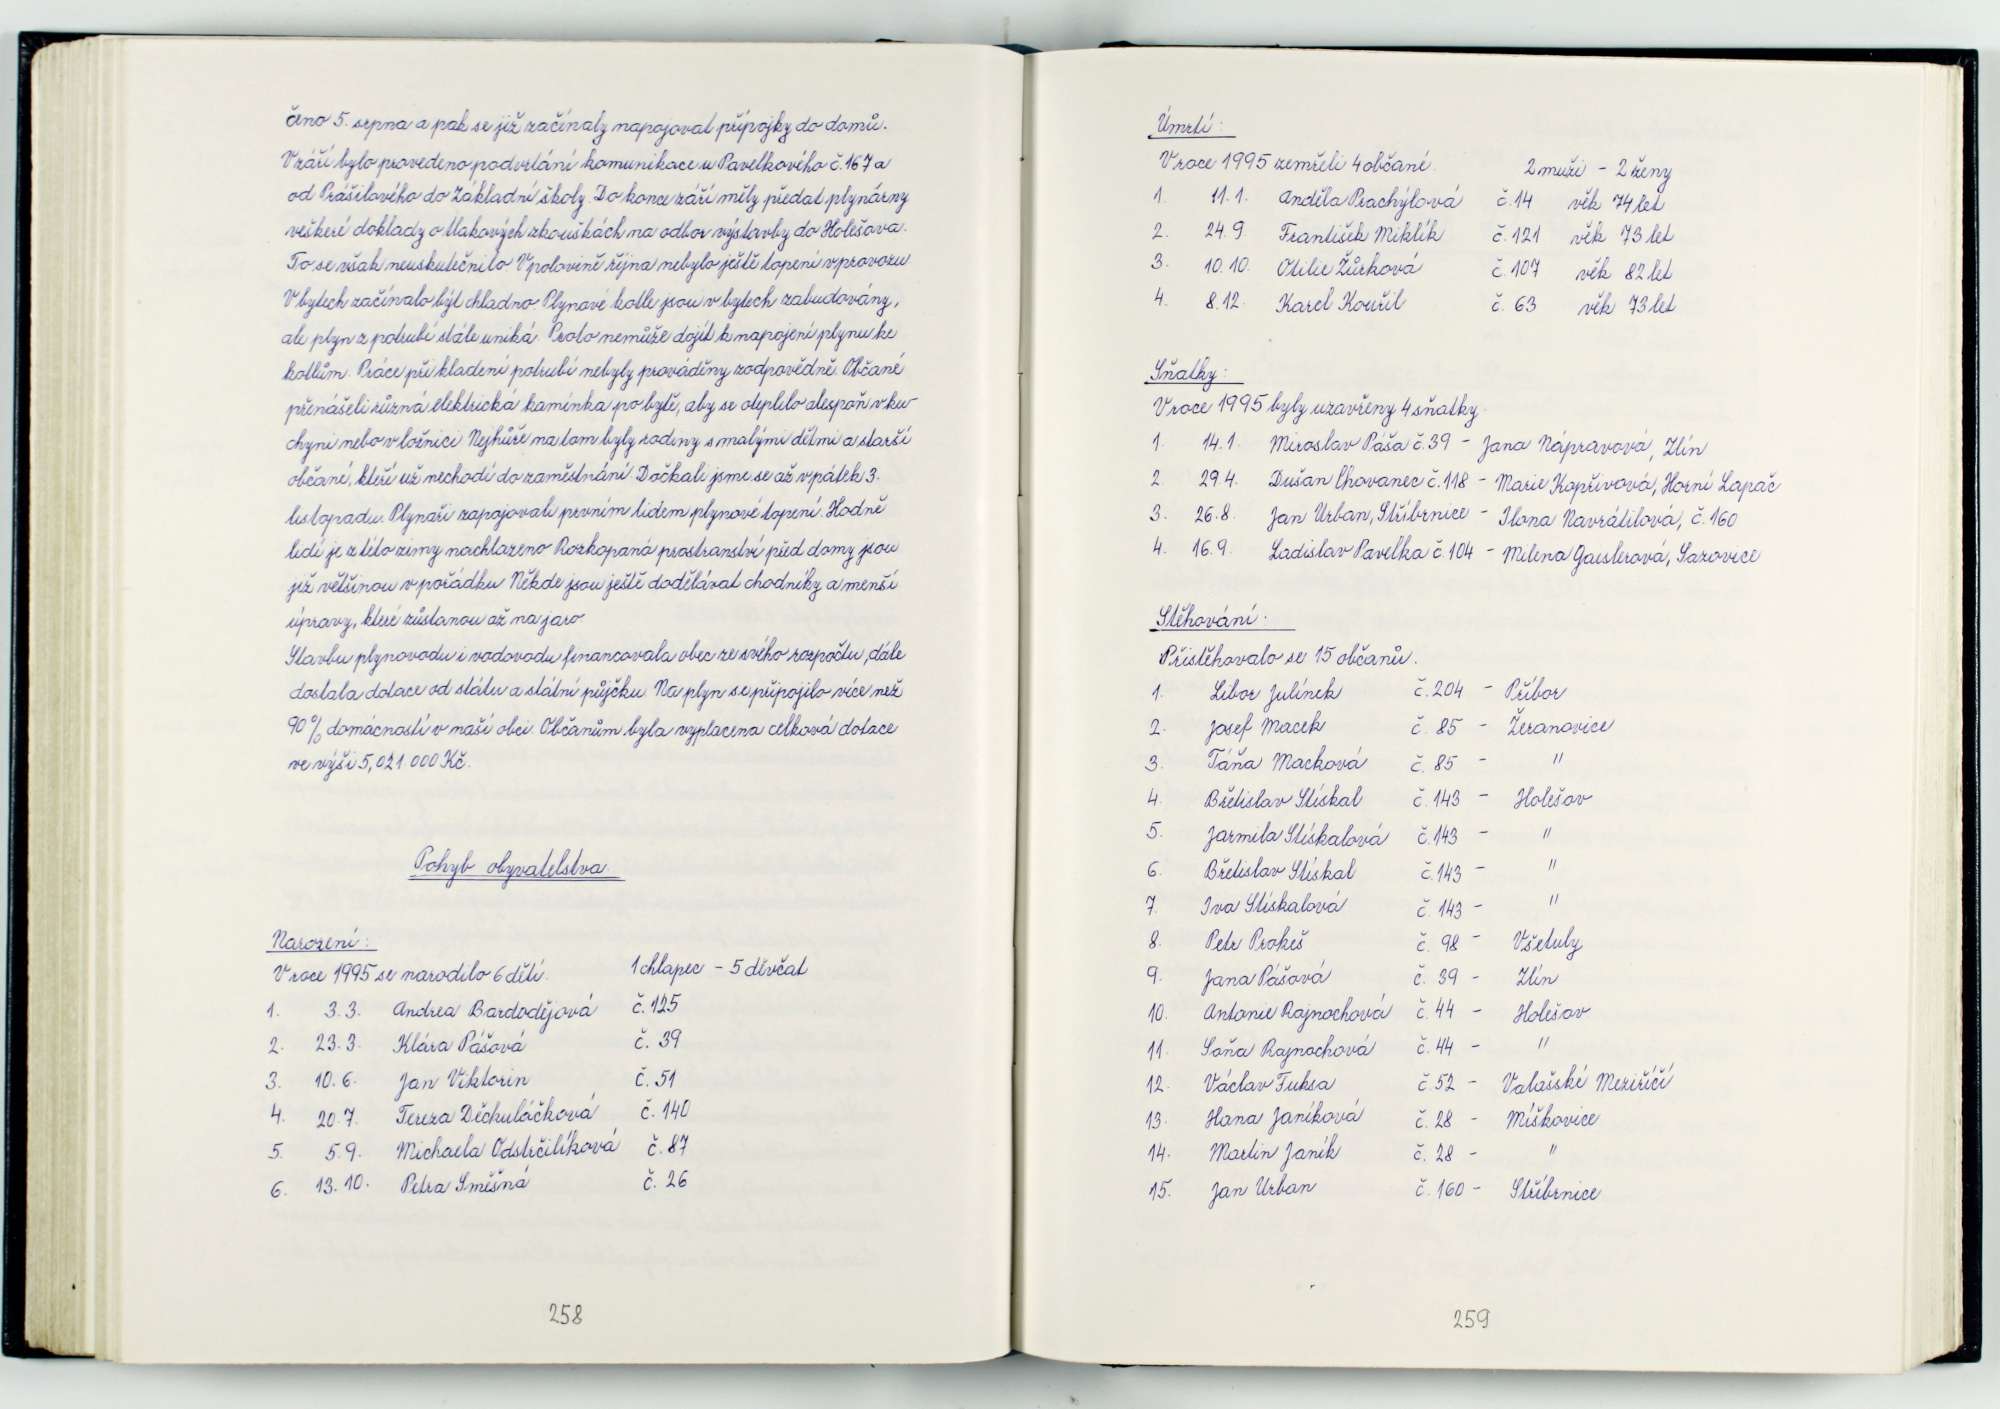 čeno 5. srpna a pak se již začínaly napojovat přípojky do domů.
V září bylo provedeno podvrtání komunikace u Pavelkového č. 167 a
od Prášilového do Základní školy. Do konce září měly předat plynárny
veškeré doklady o tlakových zkouškách na odbor výstavby do Holešova.
To se však neuskutečnilo. V polovině října nebylo ještě topení v provozu
V bytech začínalo být chladno. Plynové kotle jsou v bytech zabudovány,
ale plyn z potrubí stále uniká. Proto nemůže dojít k napojení plynu ke
kotlům. Práce při kladení potrubí nebyly prováděny zodpovědně. Občané
přenášeli různá elektrická kamínka po bytě, aby se oteplilo alespoň v ku-
chyni nebo v ložnici. Nejhůře na tom byly rodiny s malými dětmi a starší
občané, kteří už nechodí do zaměstnání. Dočkali jsme se až v pátek 3.
listopadu. Plynaři zapojovali prvním lidem plynové topení. Hodně
lidí je z této zimy nachlazeno. Rozkopaná prostranství před domy jsou
již většinou v pořádku. Někde jsou ještě dodělávat chodníky a menší
úpravy, které zůstanou až na jaro
Stavbu plynovodu i vodovodu financovala obec ze svého rozpočtu, dále
dostala dotace od státu a státní půjčku. Na plyn se připojilo více než
90% domácností v naší obci. Občanům byla vyplacena celková dotace
ve výši 5,021.000 Kč.
Pohyb obyvatelstva.
Narození:
V roce 1995 se narodilo 6 dětí. 1 chlapec - 5 děvčat
1. 3.3. Andrea Bardodějová č. 125
2. 23.3. Klára Pášová č. 39
3. 10.6. Jan Viktorin č. 51
4. 20.7. Tereza Děchuláčková č. 140
5. 5.9. Michaela Odstrčilíková č. 87
6. 13.10. Petra Směšná č. 26
258
Úmrtí:
V roce 1995 zemřeli 4 občané. 2 muži - 2 ženy
1. 11.1. Anděla Prachýlová č. 14 věk 74 let
2. 24.9. František Miklík č. 121 věk 73 let
3. 10.10. Otilie Žůrková č. 107 věk 82 let
4. 8.12. Karel Kouřil č. 63 věk 73 let
Sňatky:
V roce 1995 byly uzavřeny 4 sňatky.
1. 14.1. Miroslav Páša č. 39 - Jana Nápravová, Zlín
2. 29.4. Dušan Chovanec č. 118 - Marie Kopřivová, Horní Lapač
3. 26.8. Jan Urban, Stříbrnice - Ilona Navrátilová, č. 160
4. 16.9. Ladislav Pavelka č. 104 - Milena Gaeslerová, Sazovice
Stěhování:
Přistěhovalo se 15 občanů.
1. Libor Julínek č. 204 - Příbor
2. Josef Macek č. 85 - Žeranovice
3. Táňa Macková č. 85 - "
4. Břetislav Stískal č. 143 - Holešov
5. Jarmila Stískalová č. 143 - "
6. Břetislav Stískal č. 143 - "
7. Iva Stískalová č. 143 - "
8. Petr Prokeš č. 98 - Všetuly
9. Jana Pášová č. 39 - Zlín
10. Antonie Rajnochová č. 44 - Holešov
11. Soňa Rajnochová č. 44 - "
12. Václav Fuksa č. 52 - Valašské Meziříčí
13. Hana Janíková č. 28 - Míškovice
14. Martin Janík č. 28 - "
15. Jan Urban č. 160 - Stříbrnice
259